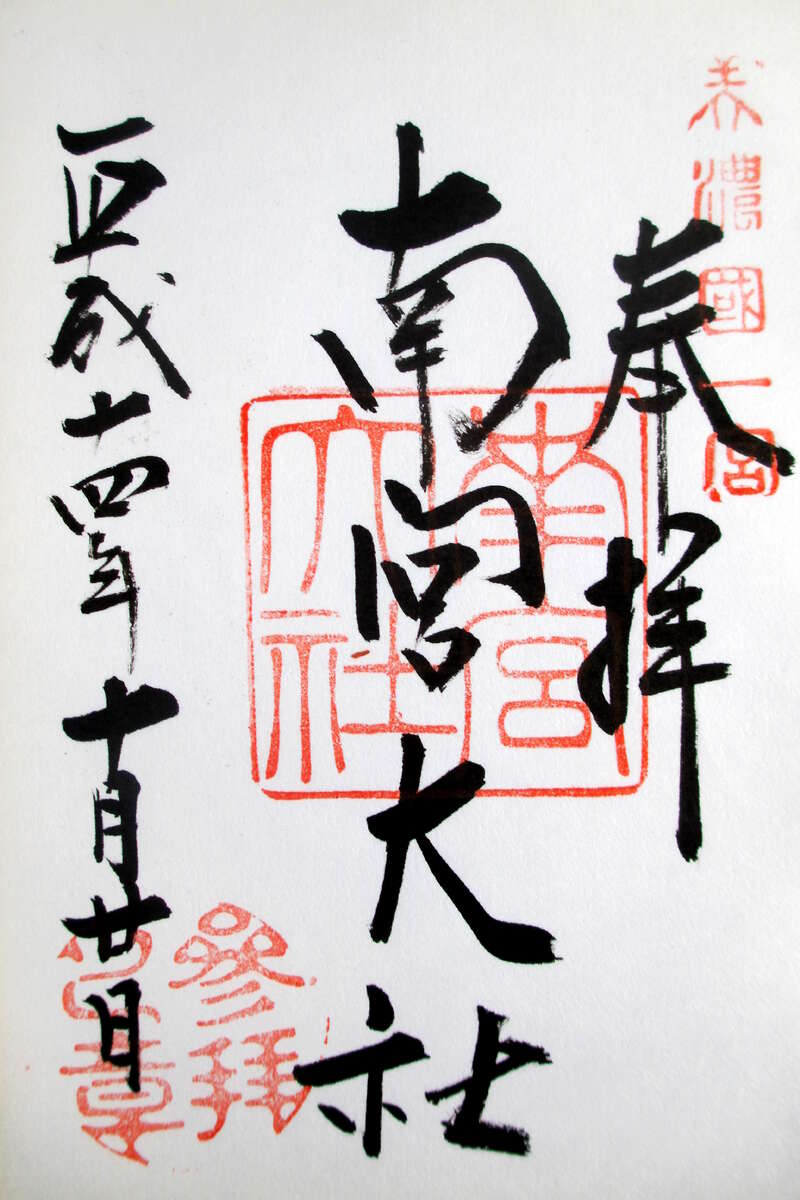 美濃國一宮
奉拝
南宮大社
南宮大社
平成十四年十月廿日
參拜
之章